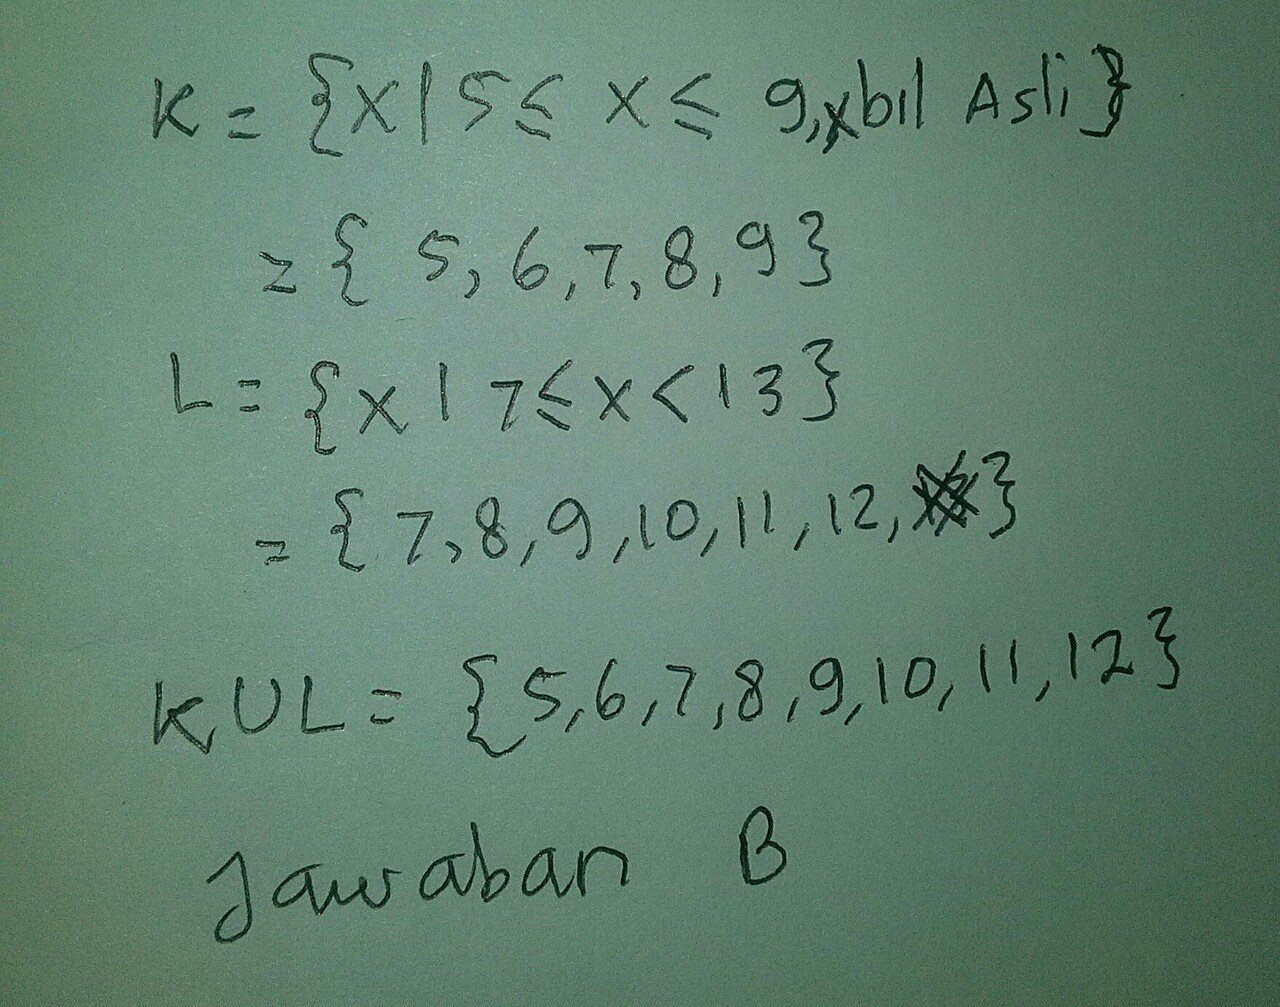 K = {x | 5 ≤ x ≤ 9, x bil Asli}
= { 5, 6, 7, 8, 9 }
L = {x | 7 ≤ x < 13}
= { 7, 8, 9, 10, 11, 12, }
K U L = {5, 6, 7, 8, 9, 10, 11, 12}
Jawaban B